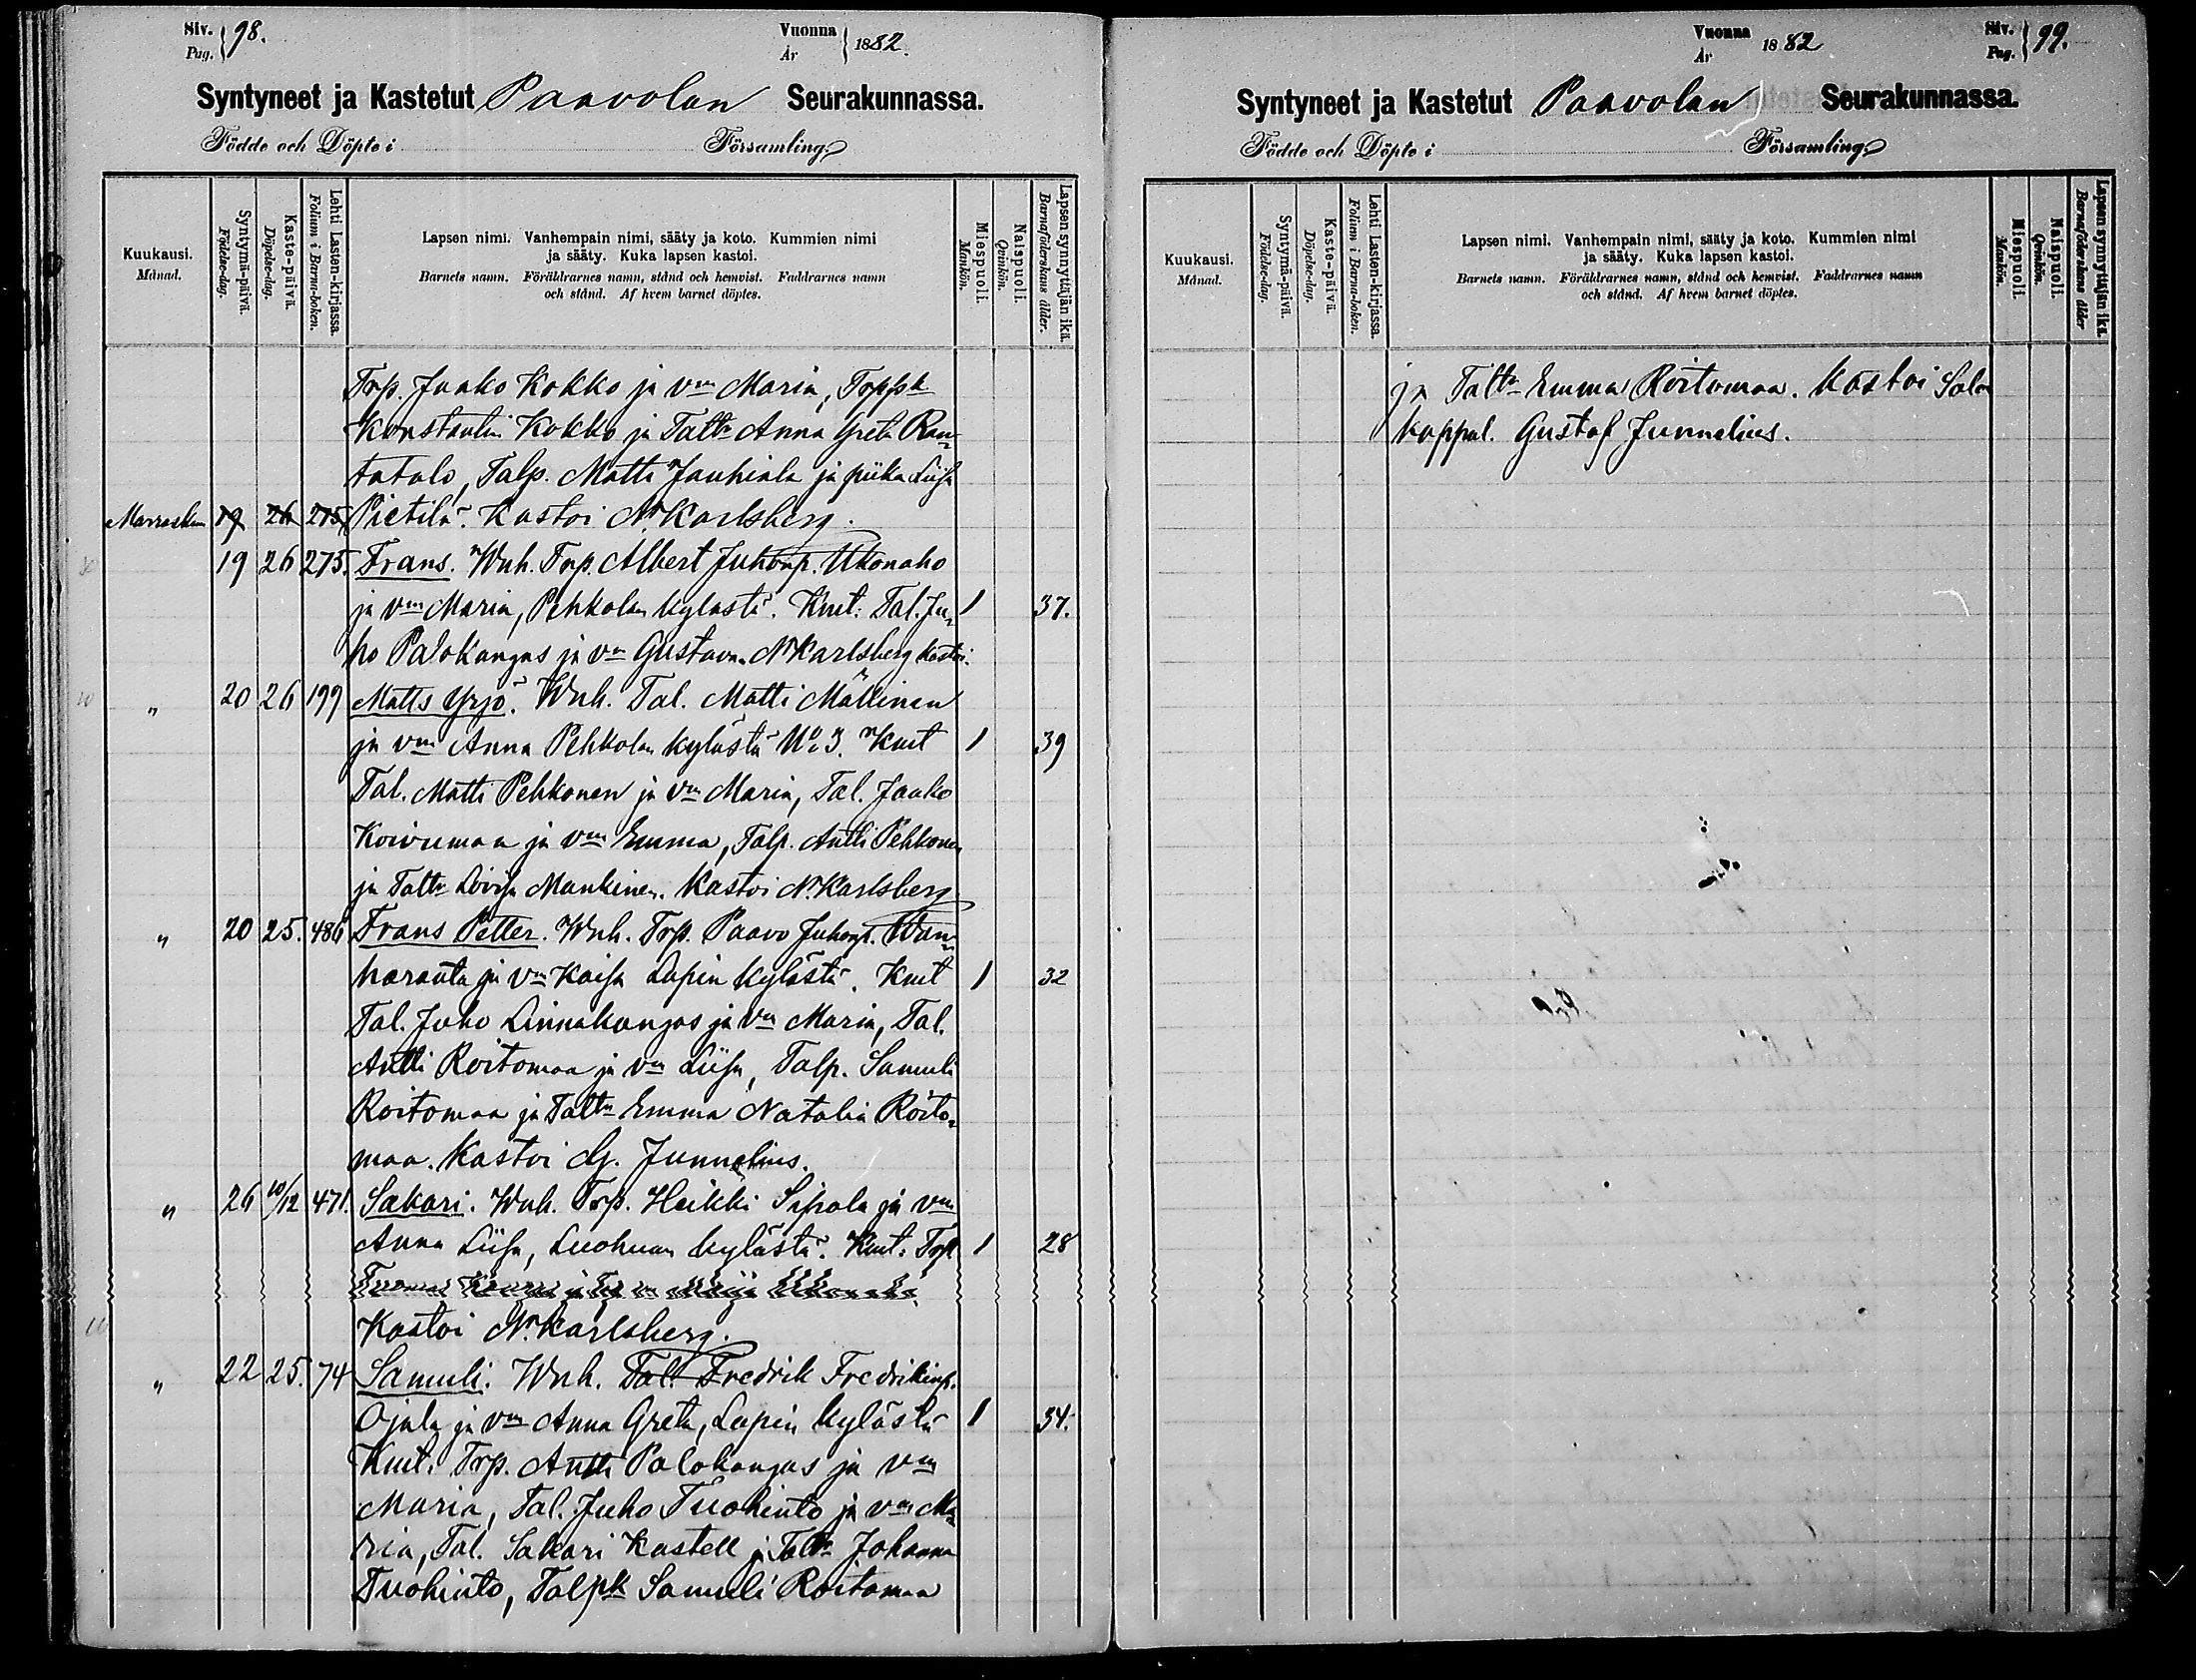 Siv. Pag. 98.
Vuonna År 1882.
Syntyneet ja Kastetut Paavolan Seurakunnassa.
Födde och Döpte i Församling.
Kuukausi. Månad.
Syntymä-päivä. Födelse-dag.
Kaste-päivä. Döpelse-dag.
Lehti Lasten-kirjassa. Folium i Barna-boken.
Lapsen nimi. Vanhempain nimi, sääty ja koto. Kummien nimi
ja sääty. Kuka lapsen kastoi.
Barnets namn. Föräldrarnes namn, stånd och hemvist. Faddrarnes namn
och stånd. Af hvem barnet döptes.
Miespuoli. Mankön.
Naispuoli. Qvinkön.
Lapsen synnyttäjän ikä. Barnaföderskans ålder.
Trp. Jaako Kokko ja vm Maria, Trppk
Konstantin Kokko ja Taltr Anna Greta Ran-
tatalo, Talp. Matti Jauhiala ja piika Liisa
Marraskuu 19 26 275 Pietilä. Kastoi Nr Karlsberg.
19 26 275. Frans. Wnh. Trp. Albert Juhonp. Ukonaho
ja vm Maria, Pehkolan kylästä. Kmt: Tal. Ju- 1 37.
ho Palokangas ja vm Gustava. Nr Karlsberg kastoi.
" 20 26 199 Matts Yrjö. Wnh. Tal. Matti Mällinen
ja vm Anna Pehkolan kylästä No 3. Kmt 1 39
Tal. Matti Pehkonen ja vm Maria, Tal. Jaako
Koivumaa ja vm Emma, Talp. Antti Pehkonen
ja Taltr Lovisa Mankinen. Kastoi Nr Karlsberg
" 20 25. 486 Frans Petter. Wnh. Trp. Paavo Juhonp. Wan-
haranta ja vm Kaisa Lapin kylästä. Kmt 1 32
Tal. Juho Linnakangas ja vm Maria, Tal.
Antti Roitomaa ja vm Liisa, Talp. Samuli
Roitomaa ja Taltr Emma Natalia Roito-
maa. Kastoi G. Junnelius.
" 26 10/12 471. Sakari. Wnh. Trp. Heikki Sipola ja vm
Anna Liisa, Luohuan kylästä. Kmt: Trp 1 28
Kastoi Nr Karlsberg.
" 22 25. 74 Samuli. Wnh. Tal. Fredrik Fredrikinp.
Ojala ja vm Anna Greta, Lapin kylästä 1 34.
Kmt. Trp. Antti Palokangas ja vm
Maria, Tal. Juho Tuohinto ja vm Ma-
ria, Tal. Sakari Kastell ja Taltr Johanna
Tuohinto, Talpk Samuli Roitomaa
Vuonna År 1882
Siv. Pag. 99.
Syntyneet ja Kastetut Paavolan Seurakunnassa.
Födde och Döpte i Församling.
Kuukausi. Månad.
Syntymä-päivä. Födelse-dag.
Kaste-päivä. Döpelse-dag.
Lehti Lasten-kirjassa. Folium i Barna-boken.
Lapsen nimi. Vanhempain nimi, sääty ja koto. Kummien nimi
ja sääty. Kuka lapsen kastoi.
Barnets namn. Föräldrarnes namn, stånd och hemvist. Faddrarnes namn
och stånd. Af hvem barnet döptes.
Miespuoli. Mankön.
Naispuoli. Qvinkön.
Lapsen synnyttäjän ikä. Barnaföderskans ålder
ja Taltr Emma Roitomaa. Kastoi Salon
kappal. Gustaf Junnelius.